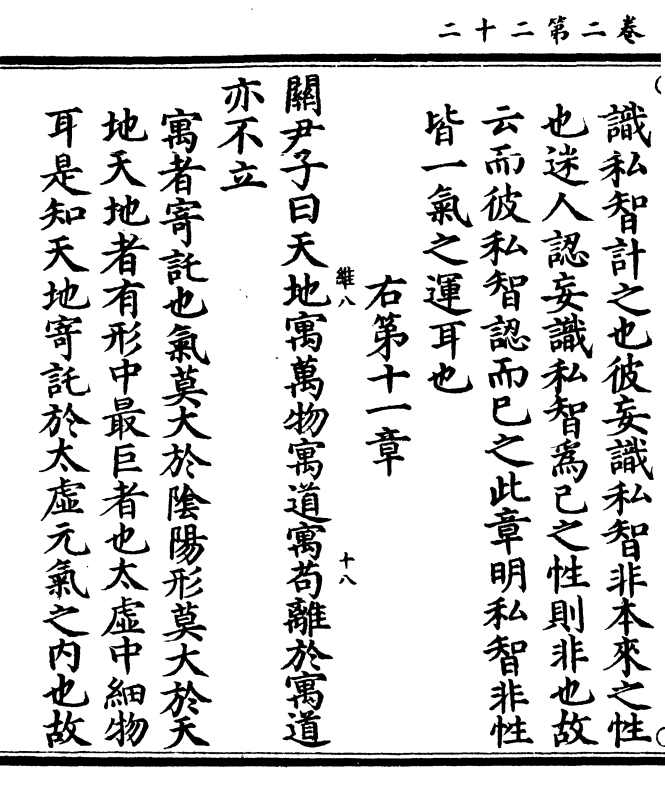 卷二第二十二
識私智計之也彼妄識私智非本來之性
也迷人認妄識私智爲己之性則非也故
云而彼私智認而已之此章明私智非性
皆一氣之運耳也
右第十一章
維八
十八
關尹子曰天地寓萬物寓道寓苟離於寓道
亦不立
寓者寄託也氣莫大於陰陽形莫大於天
地天地者有形中最巨者也太虛中細物
耳是知天地寄託於太虛元氣之内也故